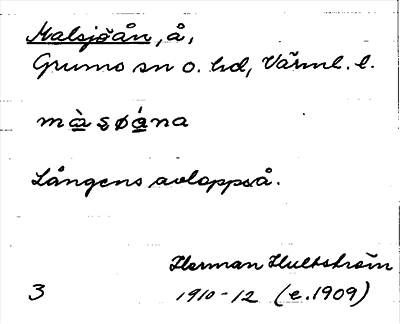 Malsjöån, å,
Grums sn o. hd, Värml. l.
màsøána
Långens avloppså.
Herman Hultström
3 1910-12 (e.1909)